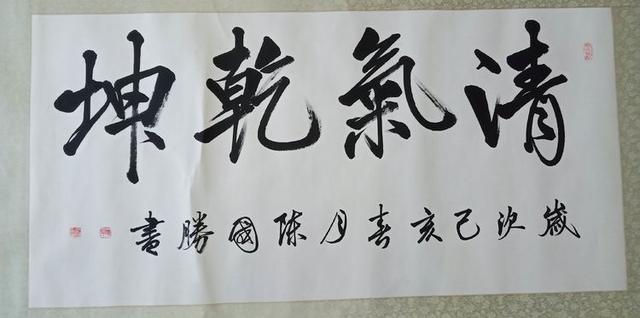 清氣乾坤
歲次己亥春月陳國勝書